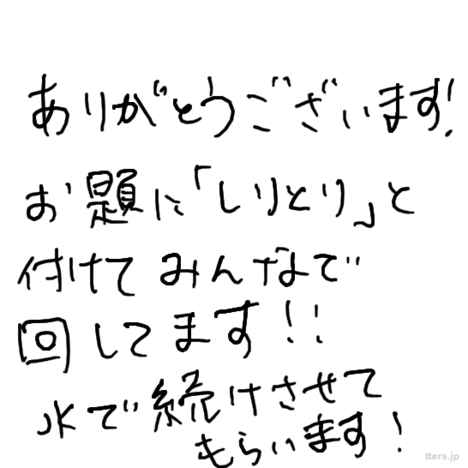 ありがとうございます!
お題に「しりとり」と
付けてみんなで
回してます!!
水で続けさせて
もらいます!
tters.jp